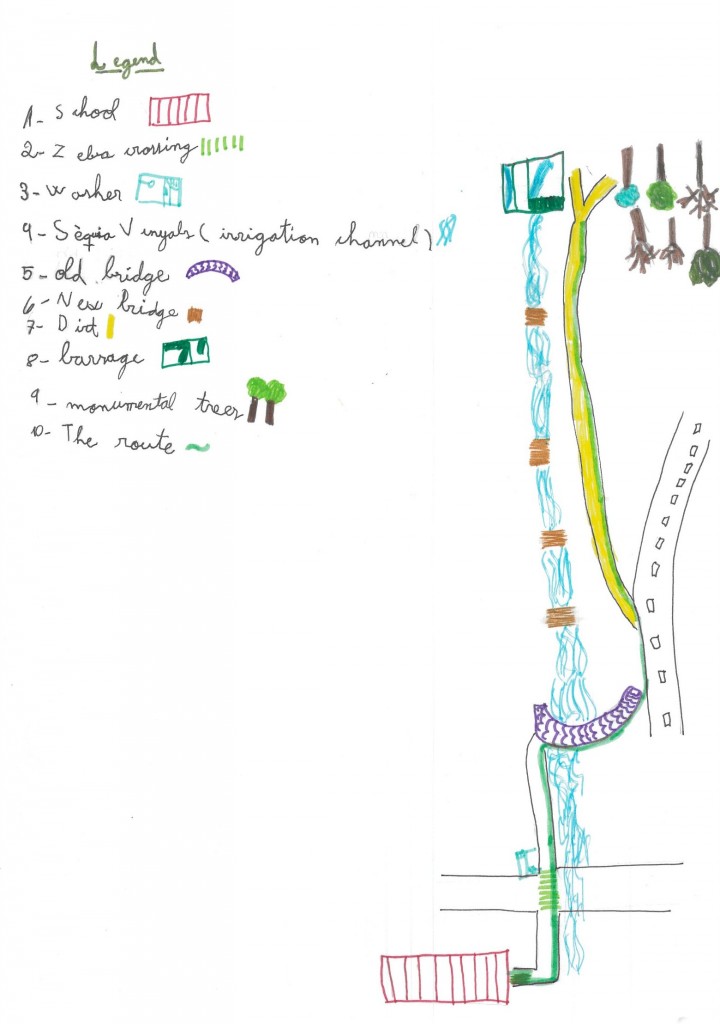 Legend
1- School
2- Zebra crossing
3- Washer
4- Sèquia Vinyals (irrigation channel)
5- old bridge
6- New bridge
7- Dirt
8- barrage
9- monumental trees
10- The route